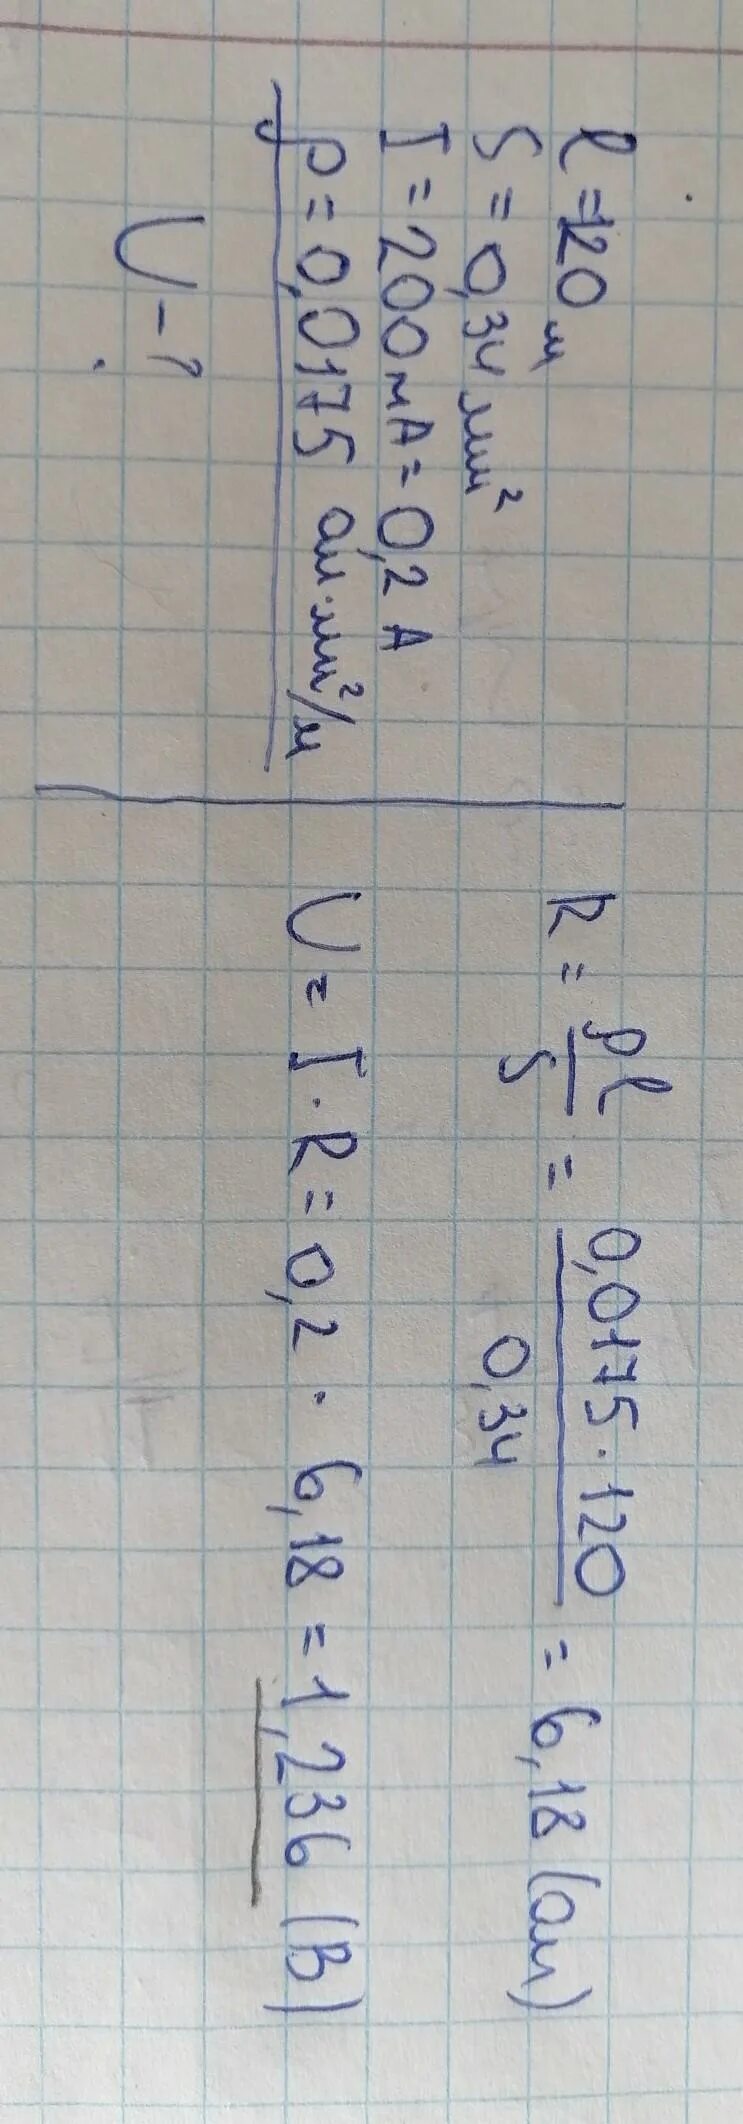 l = 120 м
S = 0,34 мм²
I = 200 мА = 0,2 А
ρ = 0,0175 ом·мм²/м
U - ?
R = ρl/S = 0,0175·120/0,34 = 6,18 (ом)
U = I · R = 0,2 · 6,18 = 1,236 (В)